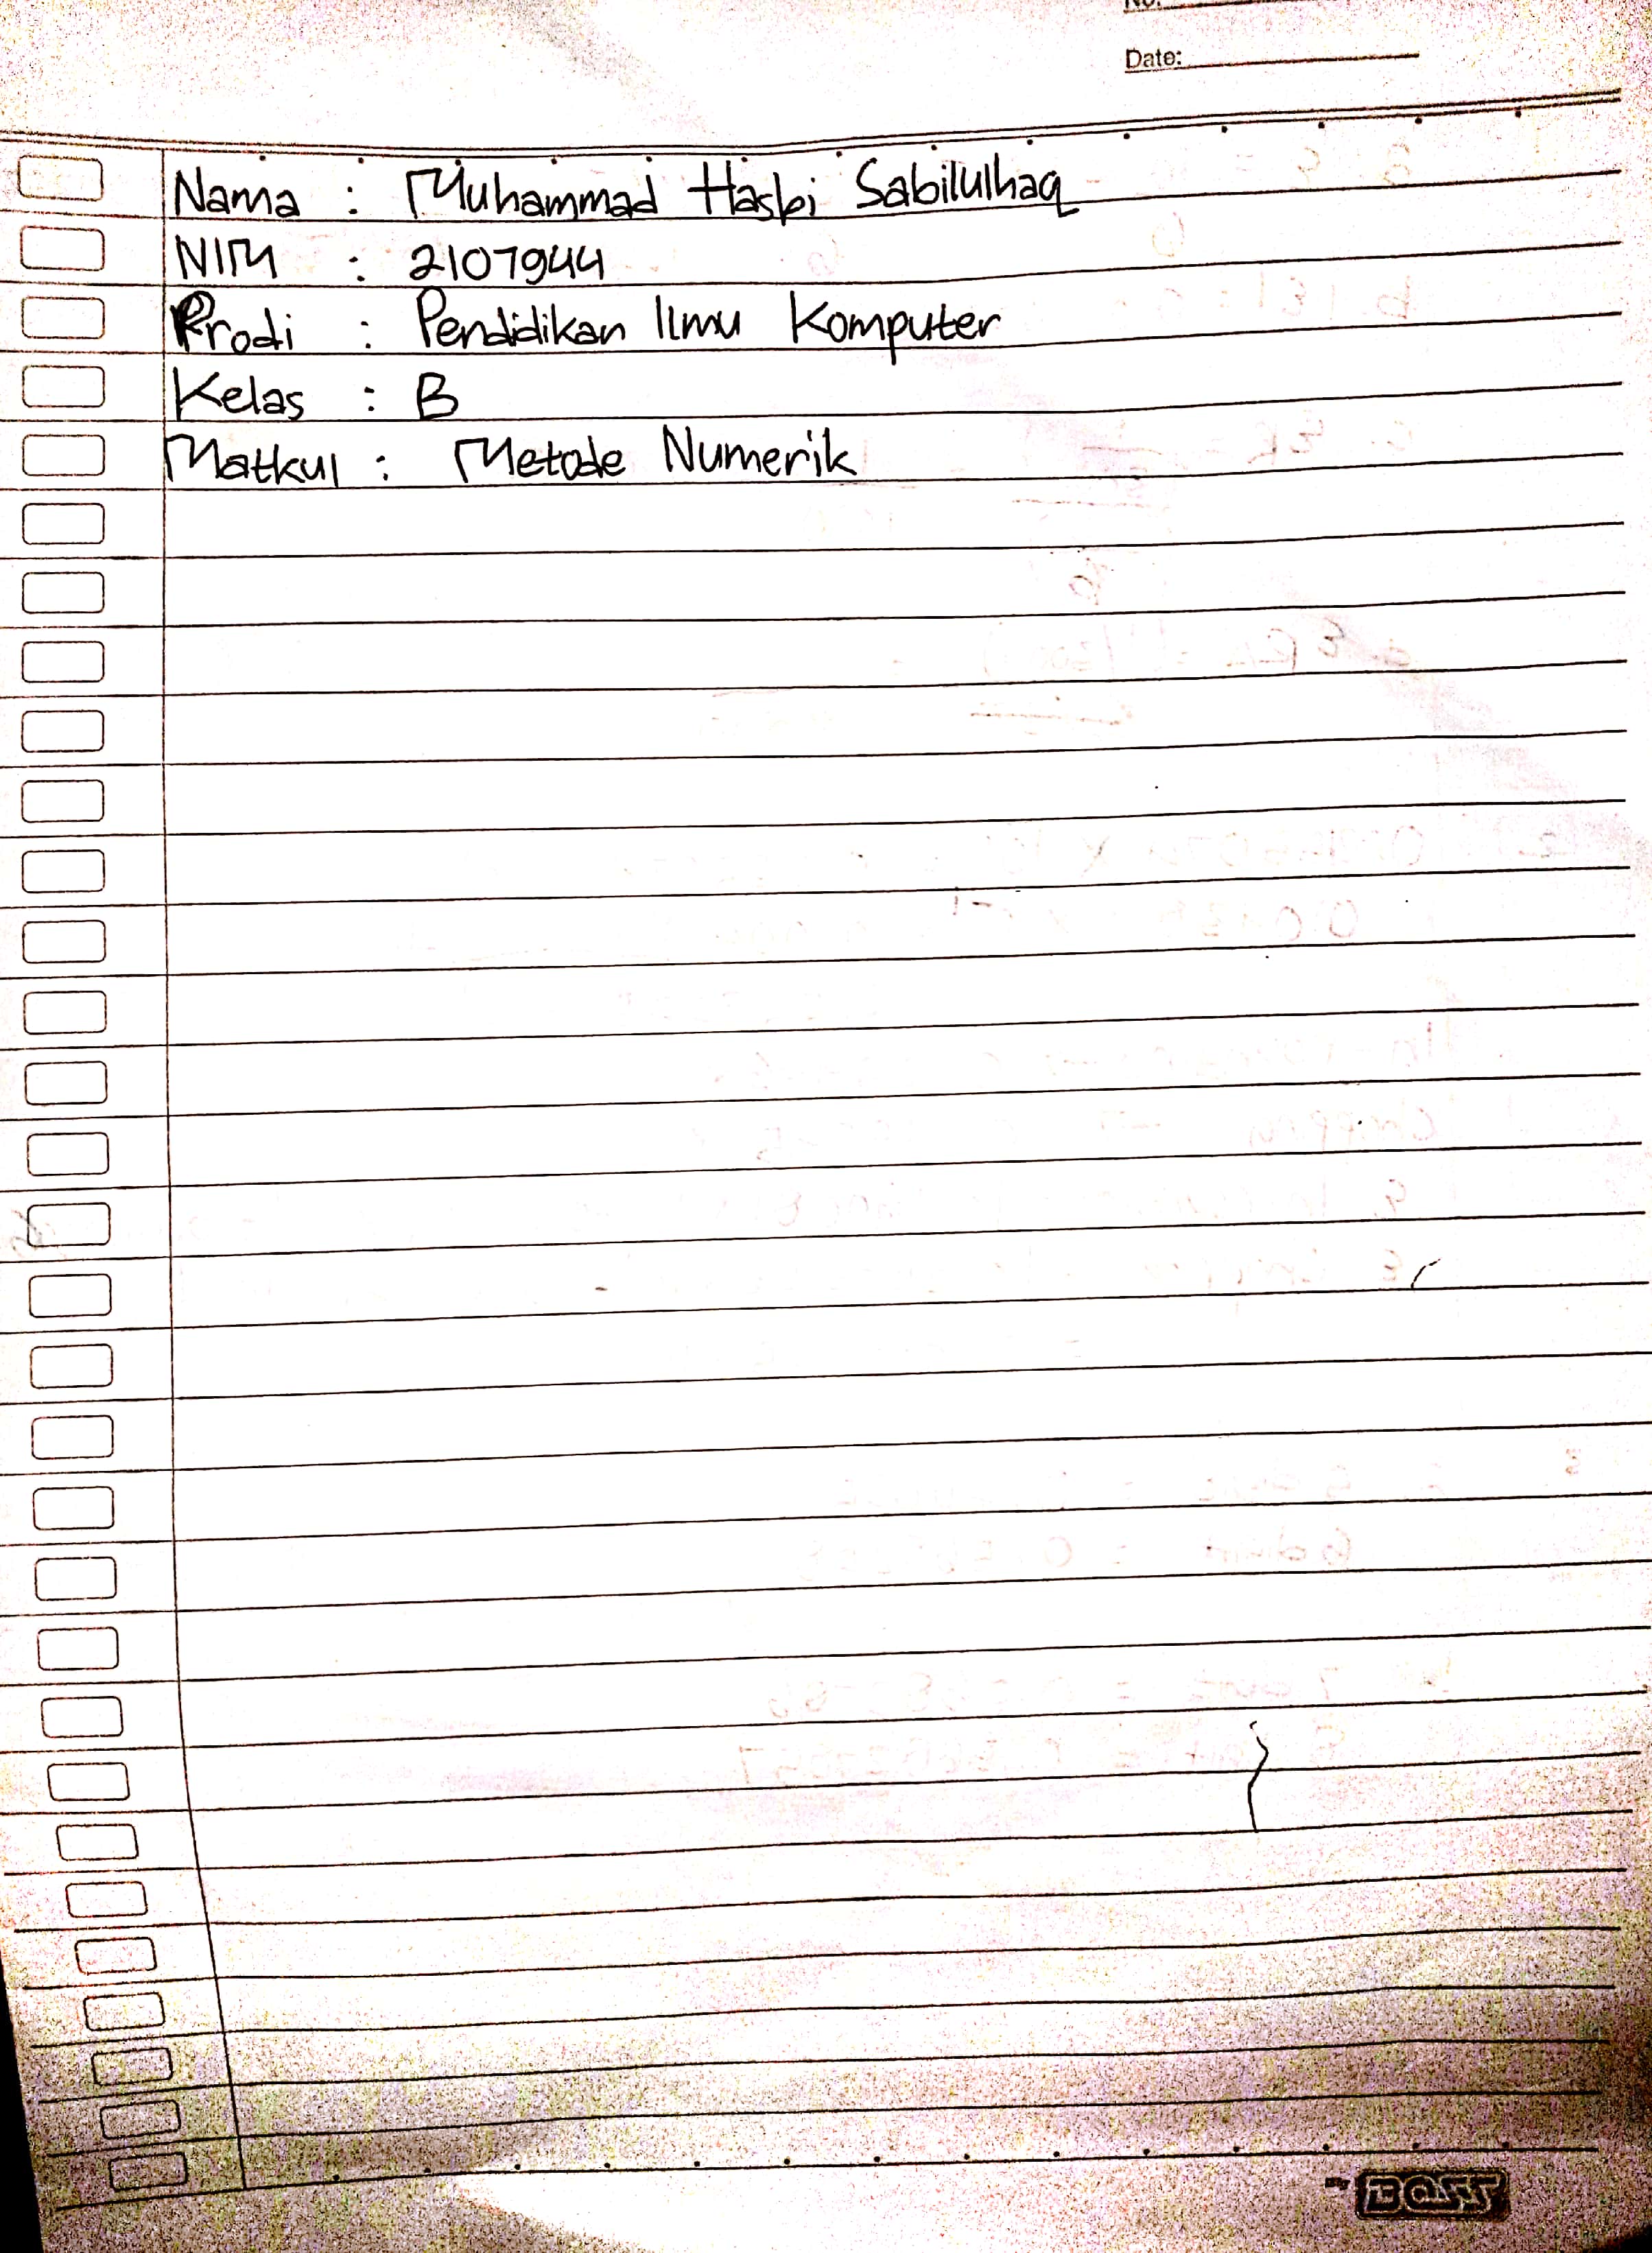 No:
Date:
Nama : Muhammad Hasbi Sabilulhaq
NIM : 2107944
Prodi : Pendidikan Ilmu Komputer
Kelas : B
Matkul : Metode Numerik
BOSS